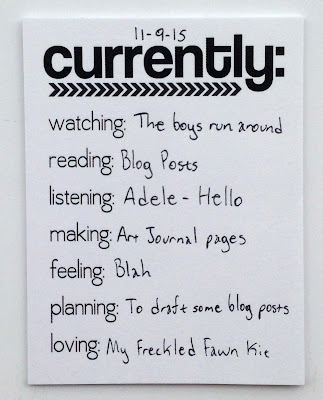 11-9-15
currently:
watching: The boys run around
reading: Blog Posts
listening: Adele - Hello
making: Art Journal pages
feeling: Blah
planning: To draft some blog posts
loving: My Freckled Fawn Kit